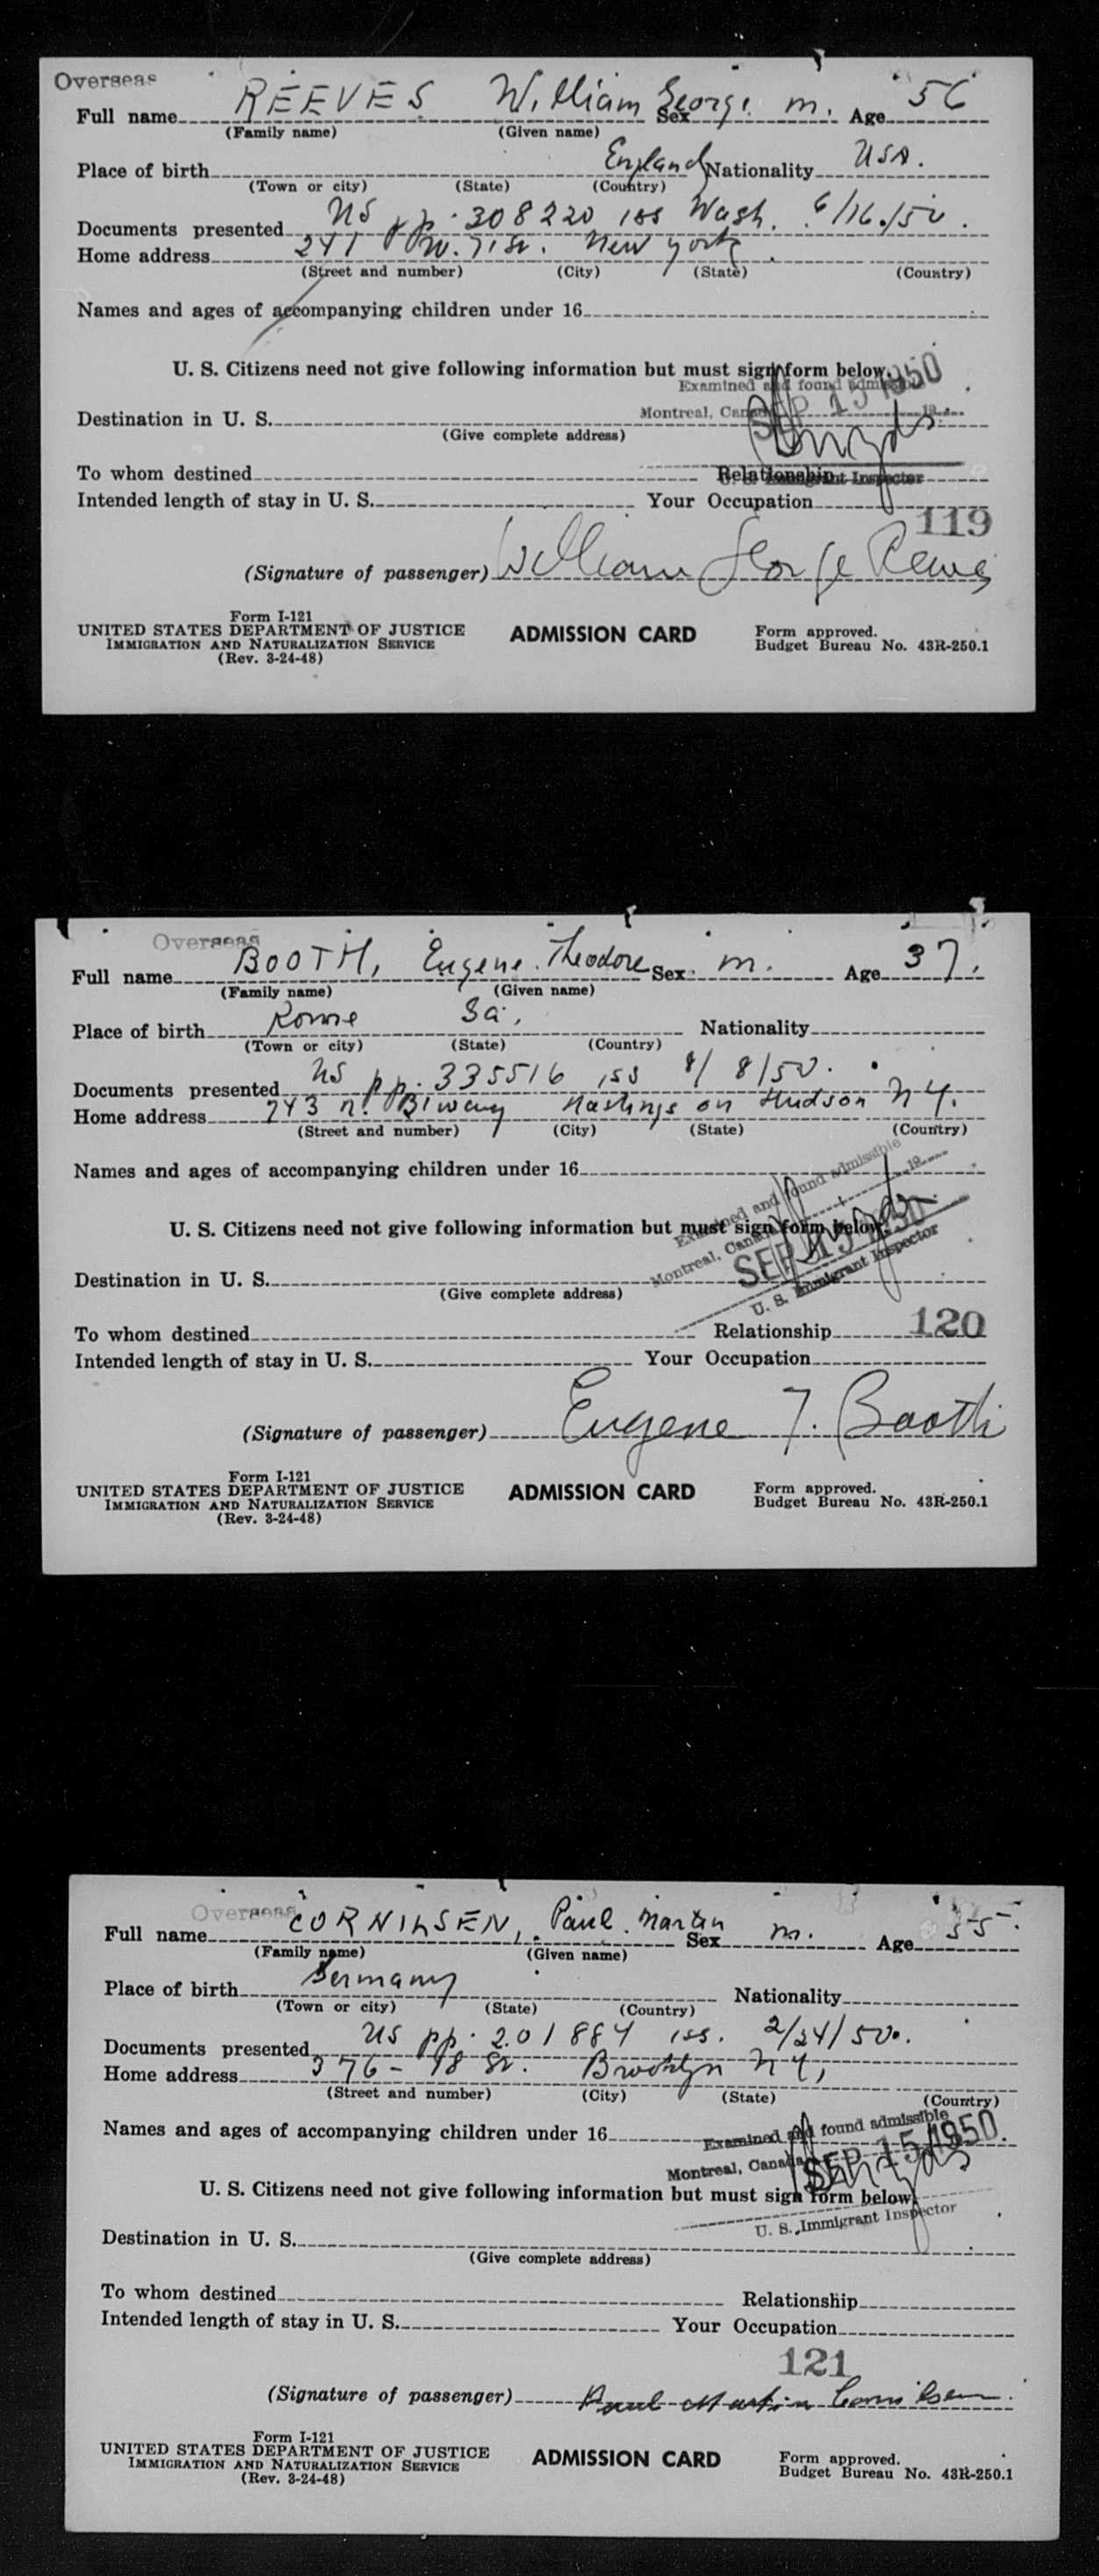 Overseas
Full name REEVES William George Sex m. Age 56
(Family name) (Given name)
Place of birth England Nationality USA.
(Town or city) (State) (Country)
Documents presented US pp. 308220 iss Wash. 6/16/50.
Home address 241 W. 71 St. New York
(Street and number) (City) (State) (Country)
Names and ages of accompanying children under 16
U. S. Citizens need not give following information but must sign form below.
Examined and found admissible
Montreal, Canada SEP 15 1950 19
Destination in U. S.
(Give complete address)
To whom destined Relationship
U. S. Immigrant Inspector
Intended length of stay in U. S. Your Occupation
119
(Signature of passenger) William George Reeves
Form I-121
UNITED STATES DEPARTMENT OF JUSTICE ADMISSION CARD Form approved.
IMMIGRATION AND NATURALIZATION SERVICE Budget Bureau No. 43R-250.1
(Rev. 3-24-48)
Overseas
Full name BOOTH, Eugene Theodore Sex m. Age 37.
(Family name) (Given name)
Place of birth Rome Ga. Nationality
(Town or city) (State) (Country)
Documents presented US pp. 335516 iss 8/8/50.
Home address 243 n. B'way Hastings on Hudson N.Y.
(Street and number) (City) (State) (Country)
Names and ages of accompanying children under 16
Examined and found admissible
Montreal, Canada SEP 15 1950 19
U. S. Citizens need not give following information but must sign form below.
U. S. Immigrant Inspector
Destination in U. S.
(Give complete address)
To whom destined Relationship 120
Intended length of stay in U. S. Your Occupation
(Signature of passenger) Eugene T. Booth
Form I-121
UNITED STATES DEPARTMENT OF JUSTICE ADMISSION CARD Form approved.
IMMIGRATION AND NATURALIZATION SERVICE Budget Bureau No. 43R-250.1
(Rev. 3-24-48)
Overseas
Full name CORNILSEN, Paul Martin Sex m. Age 55
(Family name) (Given name)
Place of birth Germany Nationality
(Town or city) (State) (Country)
Documents presented US pp. 201884 iss. 2/24/50.
Home address 376 - 48 St. Brooklyn N.Y,
(Street and number) (City) (State) (Country)
Names and ages of accompanying children under 16
Examined and found admissible
Montreal, Canada SEP 15 1950
U. S. Citizens need not give following information but must sign form below.
U. S. Immigrant Inspector
Destination in U. S.
(Give complete address)
To whom destined Relationship
Intended length of stay in U. S. Your Occupation
121
(Signature of passenger) Paul Martin Cornilsen
Form I-121
UNITED STATES DEPARTMENT OF JUSTICE ADMISSION CARD Form approved.
IMMIGRATION AND NATURALIZATION SERVICE Budget Bureau No. 43R-250.1
(Rev. 3-24-48)